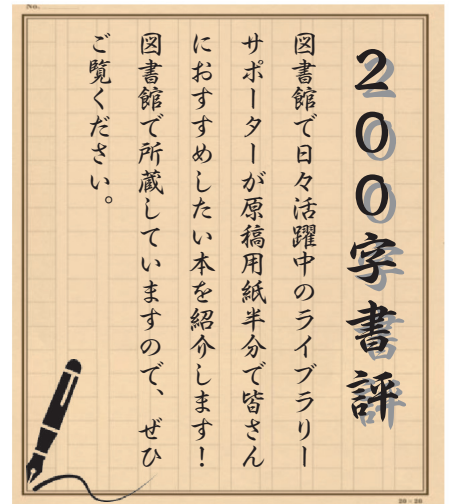 No.
２００字書評
図書館で日々活躍中のライブラリー
サポーターが原稿用紙半分で皆さん
におすすめしたい本を紹介します！
図書館で所蔵していますので、ぜひ
ご覧ください。
20×20